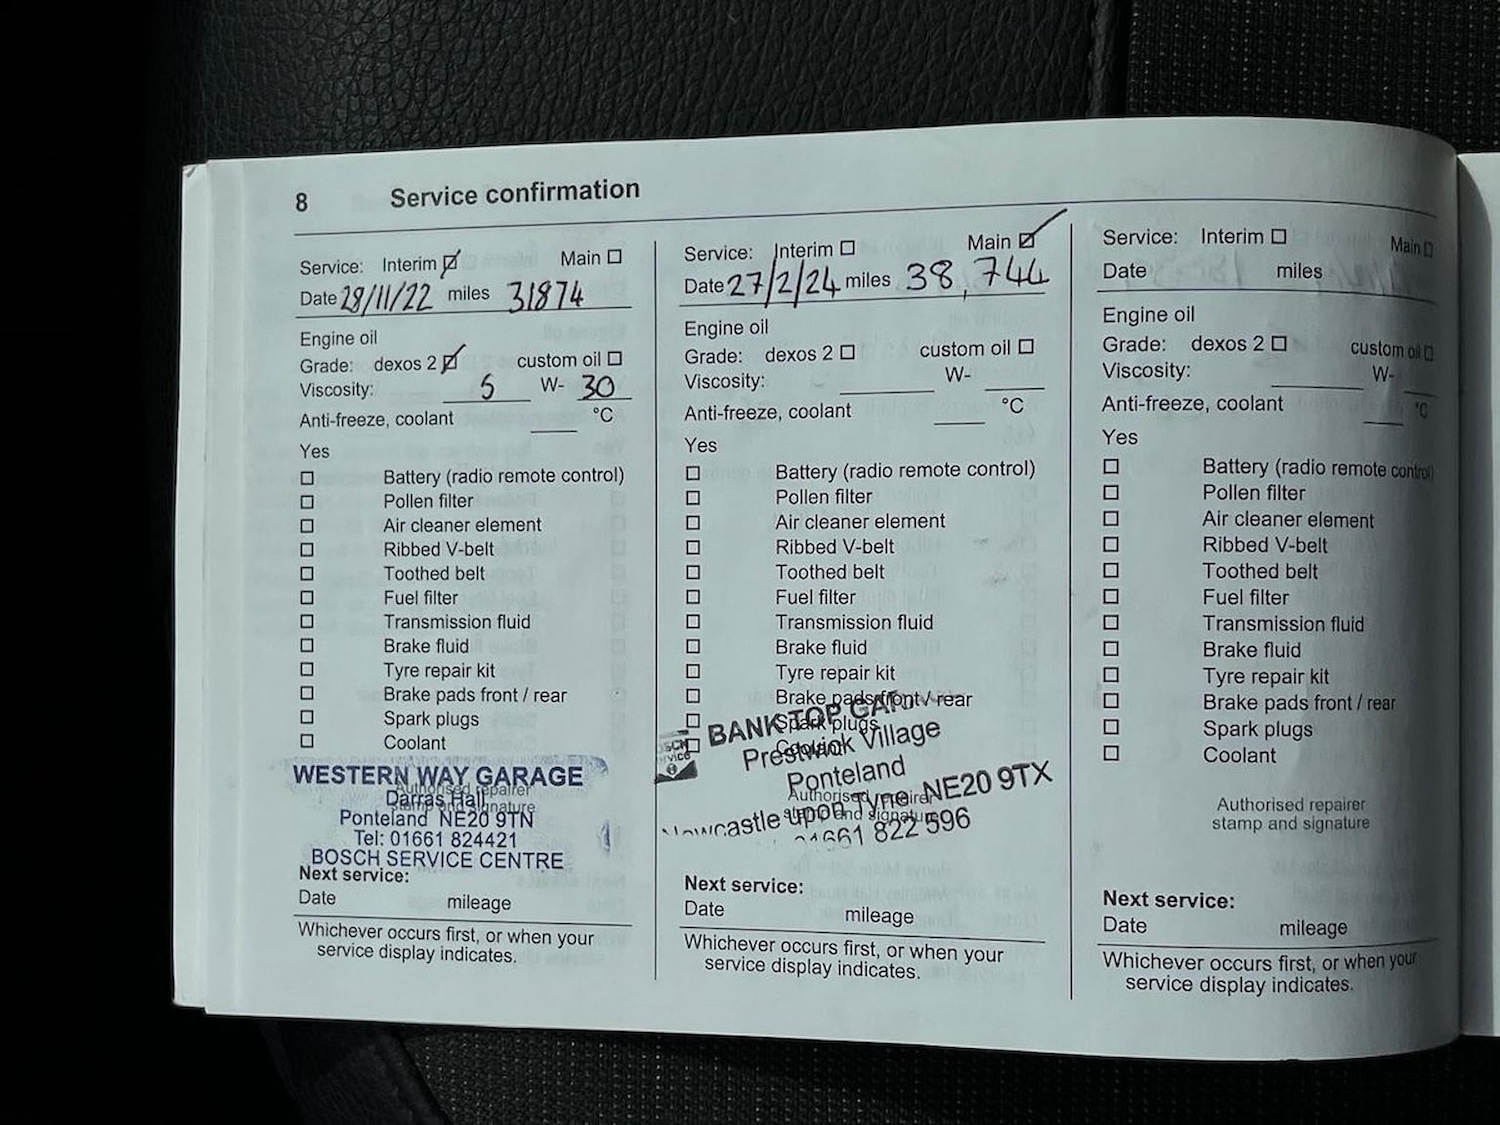 8 Service confirmation
Service: Interim Main
Date 28/11/22 miles 31874
Engine oil
Grade: dexos 2 custom oil
Viscosity: 5 W- 30
Anti-freeze, coolant °C
Yes
Battery (radio remote control)
Pollen filter
Air cleaner element
Ribbed V-belt
Toothed belt
Fuel filter
Transmission fluid
Brake fluid
Tyre repair kit
Brake pads front / rear
Spark plugs
Coolant
WESTERN WAY GARAGE
Authorised repairer
Darras Hall
stamp and signature
Ponteland NE20 9TN
Tel: 01661 824421
BOSCH SERVICE CENTRE
Next service:
Date mileage
Whichever occurs first, or when your
service display indicates.
Service: Interim Main
Date 27/2/24 miles 38,744
Engine oil
Grade: dexos 2 custom oil
Viscosity: W-
Anti-freeze, coolant °C
Yes
Battery (radio remote control)
Pollen filter
Air cleaner element
Ribbed V-belt
Toothed belt
Fuel filter
Transmission fluid
Brake fluid
Tyre repair kit
Brake pads front / rear
Spark plugs
Coolant
BANK TOP
Prestwick Village
Ponteland
Authorised repairer
stamp and signature
Newcastle upon Tyne NE20 9TX
01661 822 596
Next service:
Date mileage
Whichever occurs first, or when your
service display indicates.
Service: Interim Main
Date miles
Engine oil
Grade: dexos 2 custom oil
Viscosity: W-
Anti-freeze, coolant °C
Yes
Battery (radio remote control)
Pollen filter
Air cleaner element
Ribbed V-belt
Toothed belt
Fuel filter
Transmission fluid
Brake fluid
Tyre repair kit
Brake pads front / rear
Spark plugs
Coolant
Authorised repairer
stamp and signature
Next service:
Date mileage
Whichever occurs first, or when your
service display indicates.